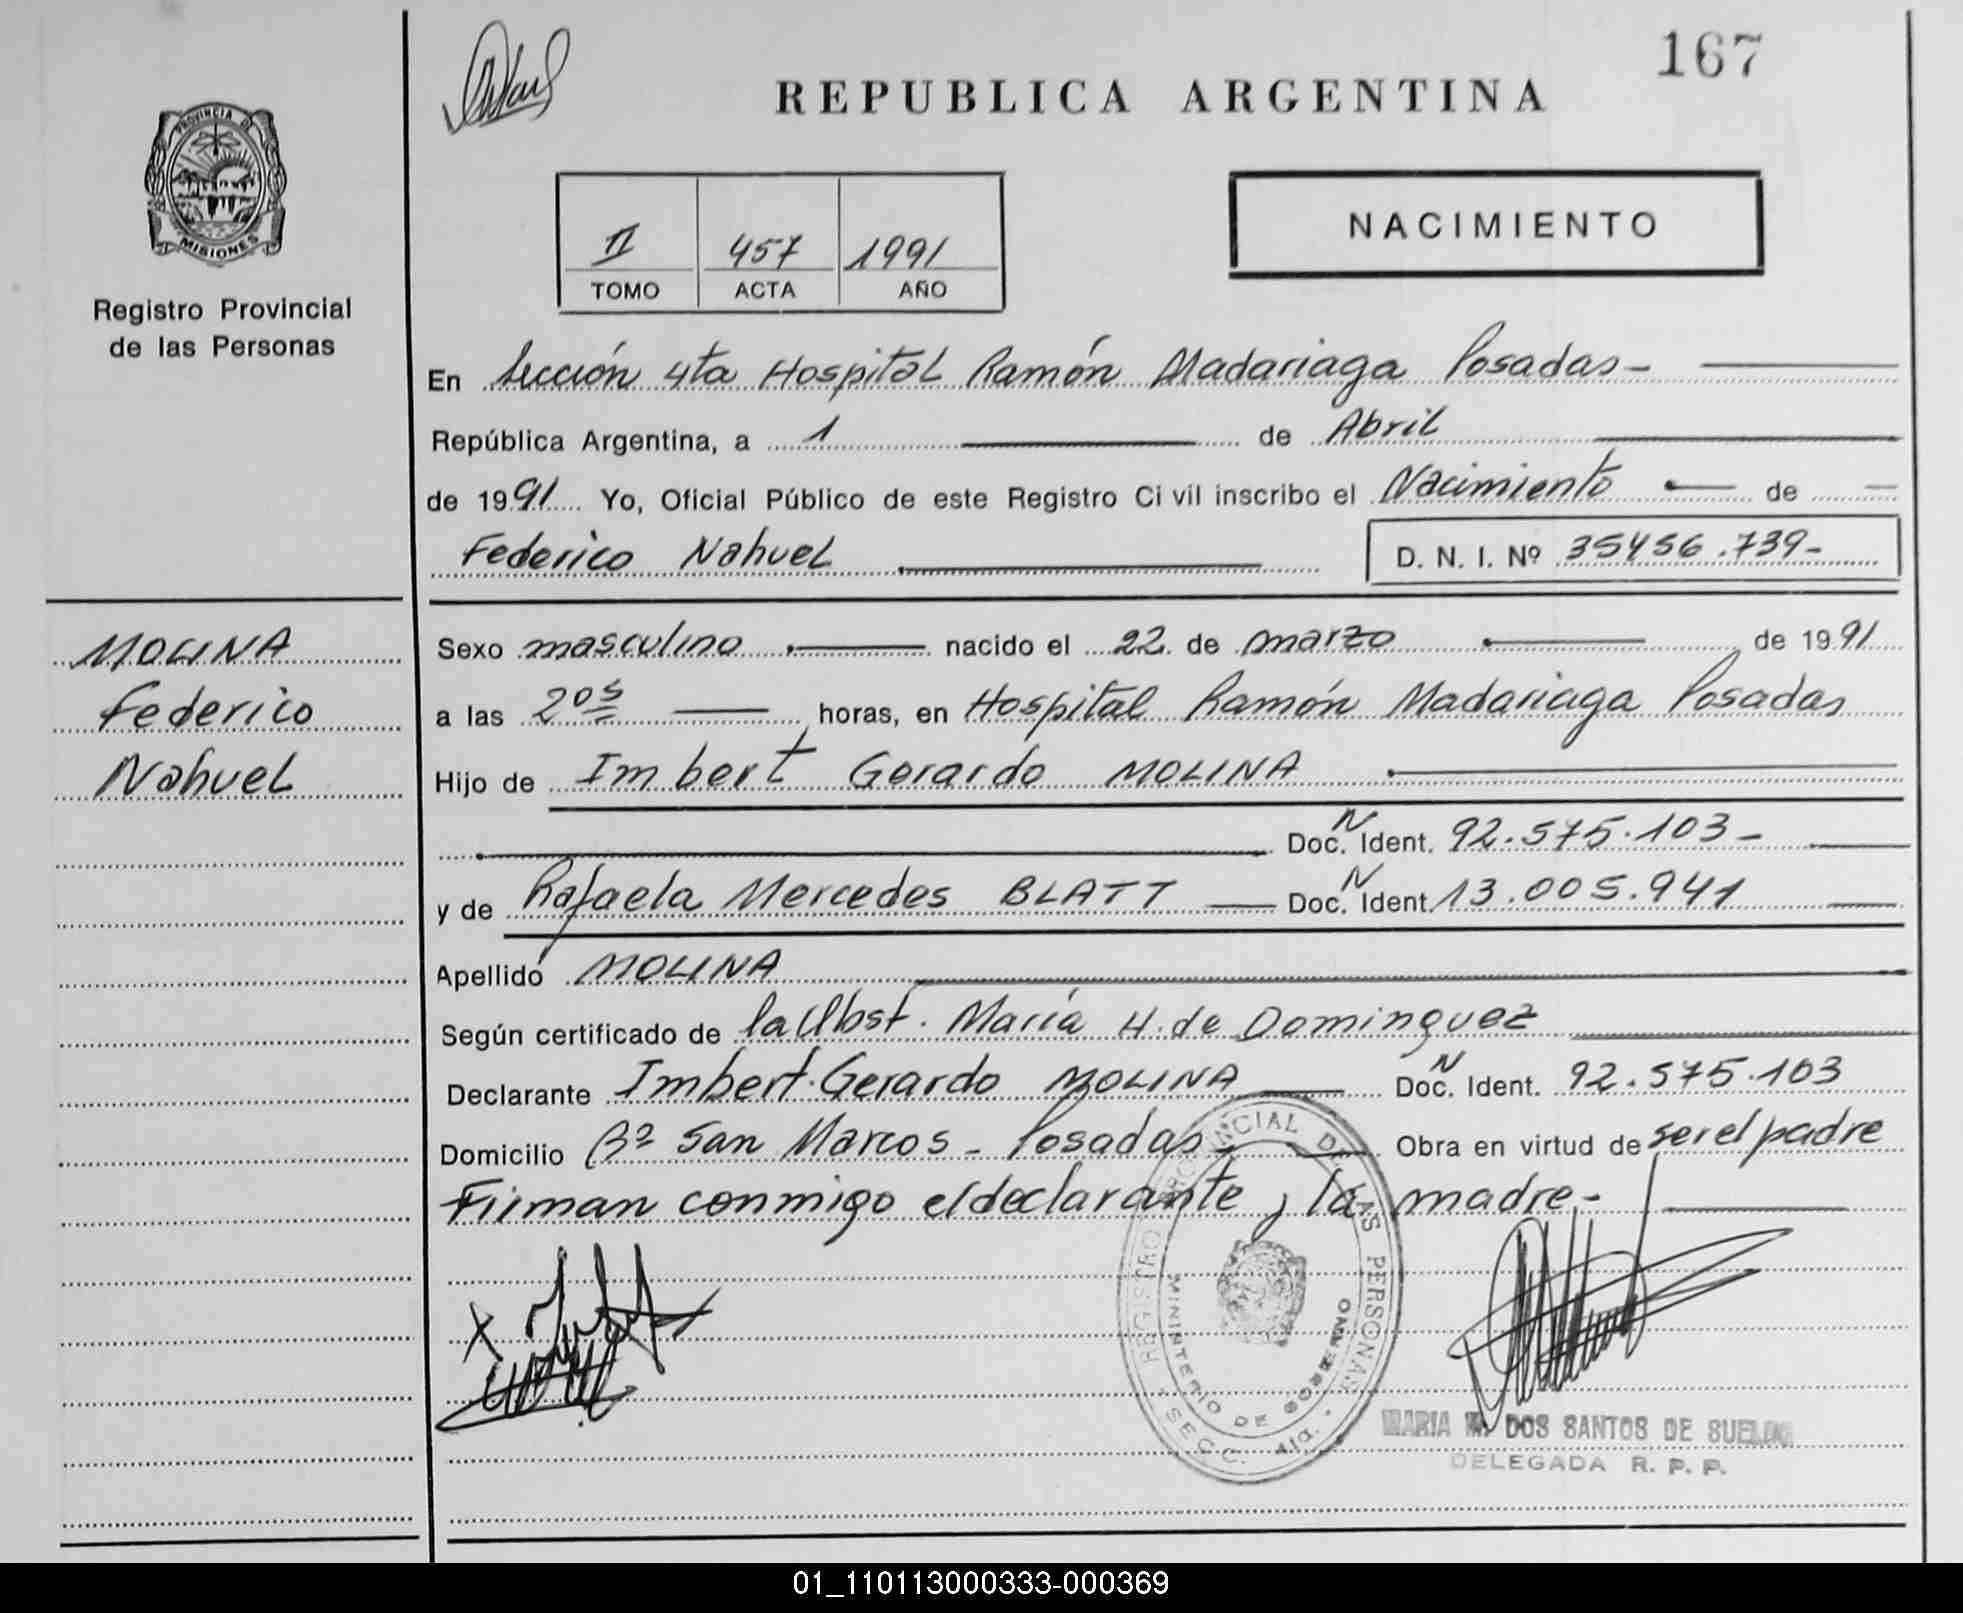 167
REPUBLICA ARGENTINA
PROVINCIA DE
MISIONES
Registro Provincial
de las Personas
NACIMIENTO
II 457 1991
TOMO ACTA AÑO
En Sección 4ta Hospital Ramón Madariaga Posadas-
República Argentina, a 1 de Abril
de 1991 Yo, Oficial Público de este Registro Civil inscribo el Nacimiento de
Federico Nahuel D. N. I. Nº 35456.739-
MOLINA
Federico
Nahuel
Sexo masculino nacido el 22 de marzo de 1991
a las 20s horas, en Hospital Ramón Madariaga Posadas
Hijo de Imbert Gerardo MOLINA
Doc. N Ident. 92.575.103-
y de Rafaela Mercedes BLATT Doc. N Ident. 13.005.941
Apellido MOLINA
Según certificado de la Obst. María H. de Dominguez
Declarante Imbert Gerardo MOLINA Doc. N Ident. 92.575.103
Domicilio Bº San Marcos - Posadas Obra en virtud de ser el padre
Firman conmigo el declarante y la madre.-
REGISTRO PROVINCIAL DE LAS PERSONAS
MINISTERIO DE GOBIERNO
SECC. 4ta.
MARIA M. DOS SANTOS DE SUELDO
DELEGADA R. P. P.
01_110113000333-000369